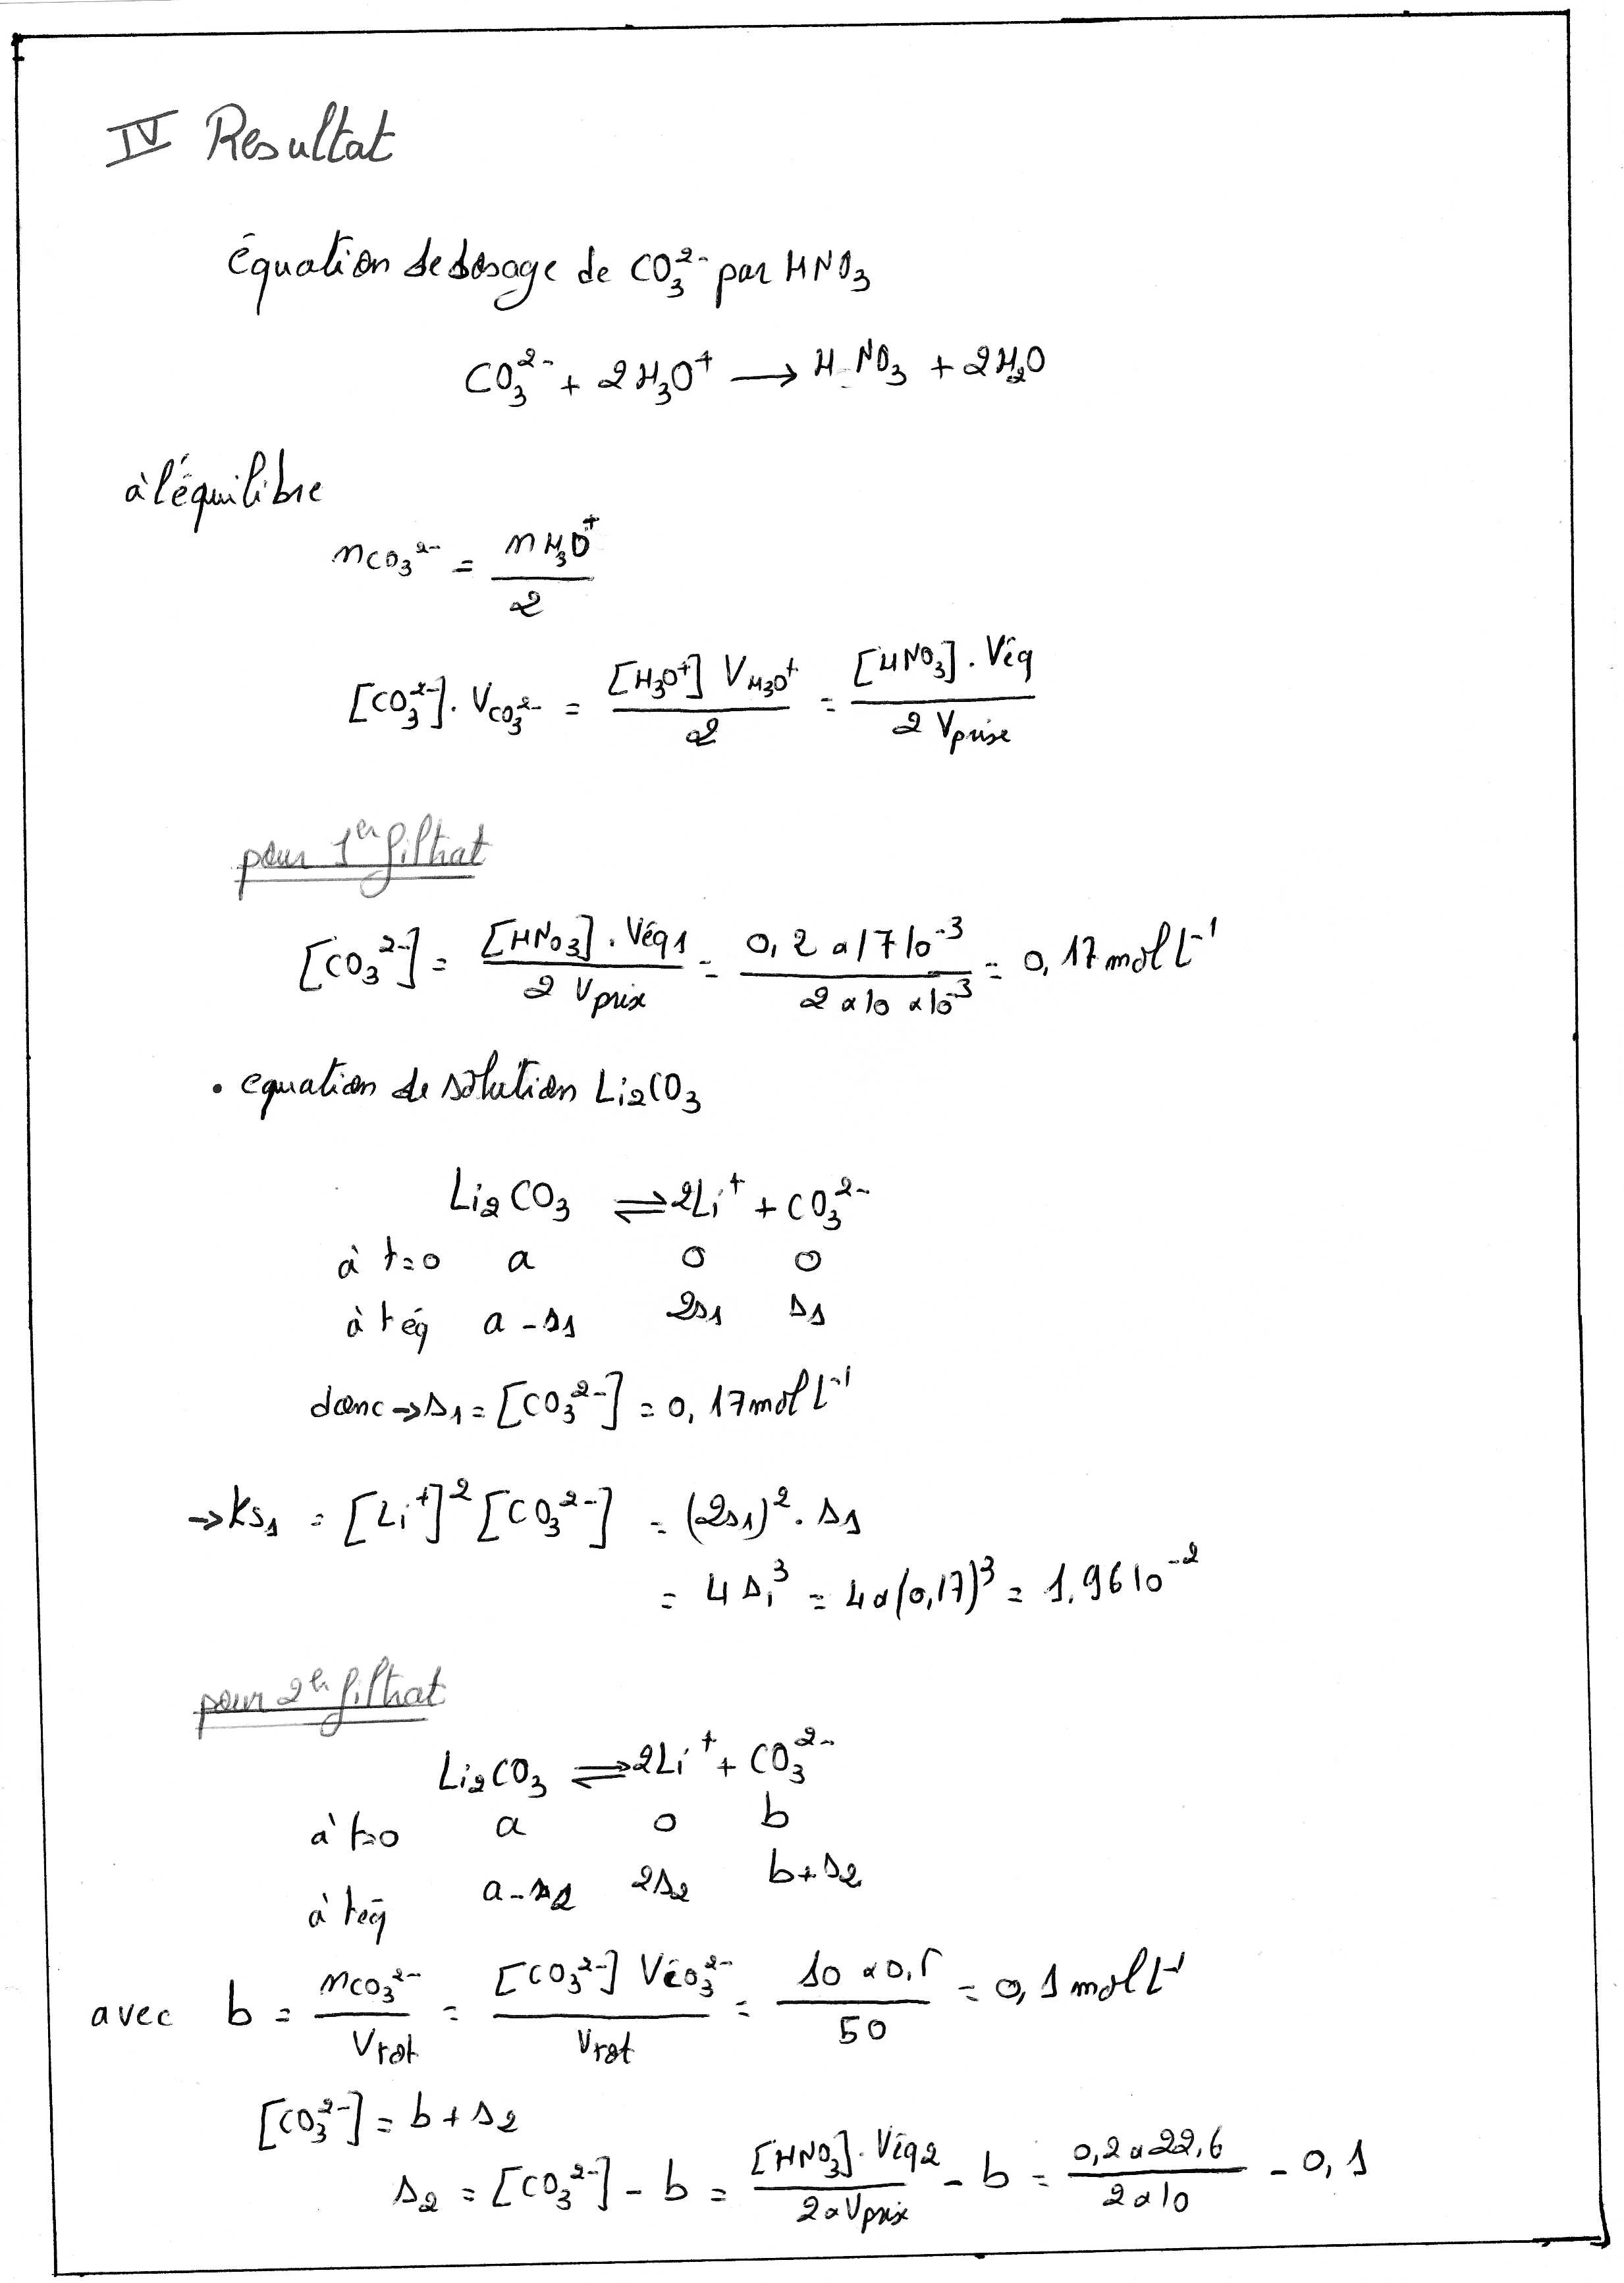 IV Resultat
équation de dosage de CO₃²⁻ par HNO₃
CO₃²⁻ + 2H₃O⁺ → HNO₃ + 2H₂O
à l'équilibre
nCO₃²⁻ = nH₃O⁺ / 2
[CO₃²⁻] . VCO₃²⁻ = [H₃O⁺] VH₃O⁺ / 2 = [HNO₃] . Véq / 2 Vprise
pour 1er filtrat
[CO₃²⁻] = [HNO₃] . Véq1 / 2 Vprix = 0,2 x 17 10⁻³ / 2 x 10 x 10⁻³ = 0,17 mol L⁻¹
• equation de solution Li₂CO₃
Li₂CO₃ ⇌ 2Li⁺ + CO₃²⁻
à t=0 a 0 0
à t éq a - s₁ 2s₁ s₁
donc → s₁ = [CO₃²⁻] = 0,17 mol L⁻¹
→ Ks₁ = [Li⁺]² [CO₃²⁻] = (2s₁)² . s₁
= 4 s₁³ = 4 x (0,17)³ = 1,96 10⁻²
pour 2eh filtrat
Li₂CO₃ ⇌ 2Li⁺ + CO₃²⁻
à t=0 a 0 b
à téq a - s₂ 2s₂ b + s₂
avec b = nCO₃²⁻ / Vtot = [CO₃²⁻] VCO₃²⁻ / Vtot = 10 x 0,5 / 50 = 0,1 mol L⁻¹
[CO₃²⁻] = b + s₂
s₂ = [CO₃²⁻] - b = [HNO₃] . Véq2 / 2 x Vprix - b = 0,2 x 22,6 / 2 x 10 - 0,1